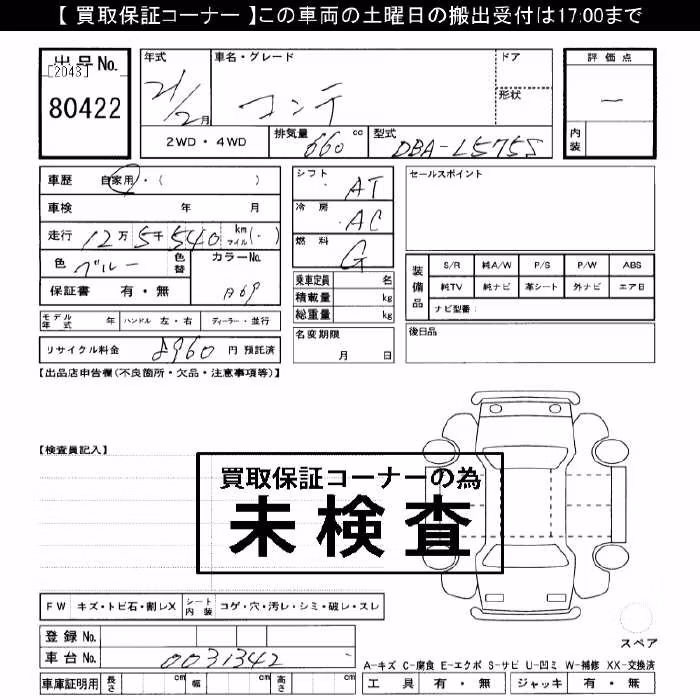 【 買取保証コーナー 】この車両の土曜日の搬出受付は17:00まで
出品No.
[2043]
80422
年式
21/2月
車名・グレード
コンテ
ドア
形状
評価点
ー
内装
2WD・4WD
排気量 660 cc
型式 DBA-L575S
車歴 自家用・( )
車検 年 月
走行 12万 5千 540 km マイル (・)
色 ブルー 色替 カラーNo.
保証書 有・無 B69
モデル年式 年 ハンドル 左・右 ディーラー・並行
リサイクル料金 8960 円 預託済
シフト AT
冷房 AC
燃料 G
乗車定員 名
積載量 kg
総重量 kg
名変期限
月 日
セールスポイント
装備品
S/R 純A/W P/S P/W ABS
純TV 純ナビ 革シート 外ナビ エアB
ナビ型番:
後日品
【出品店申告欄(不良箇所・欠品・注意事項等)】
【検査員記入】
買取保証コーナーの為
未検査
FW キズ・トビ石・割レX シート内装 コゲ・穴・汚レ・シミ・破レ・スレ
登録No.
車台No. 0031342
車庫証明用 長さ cm 幅 cm 高さ cm
スペア
A-キズ C-腐食 E-エクボ S-サビ U-凹ミ W-補修 XX-交換済
工具 有・無 ジャッキ 有・無